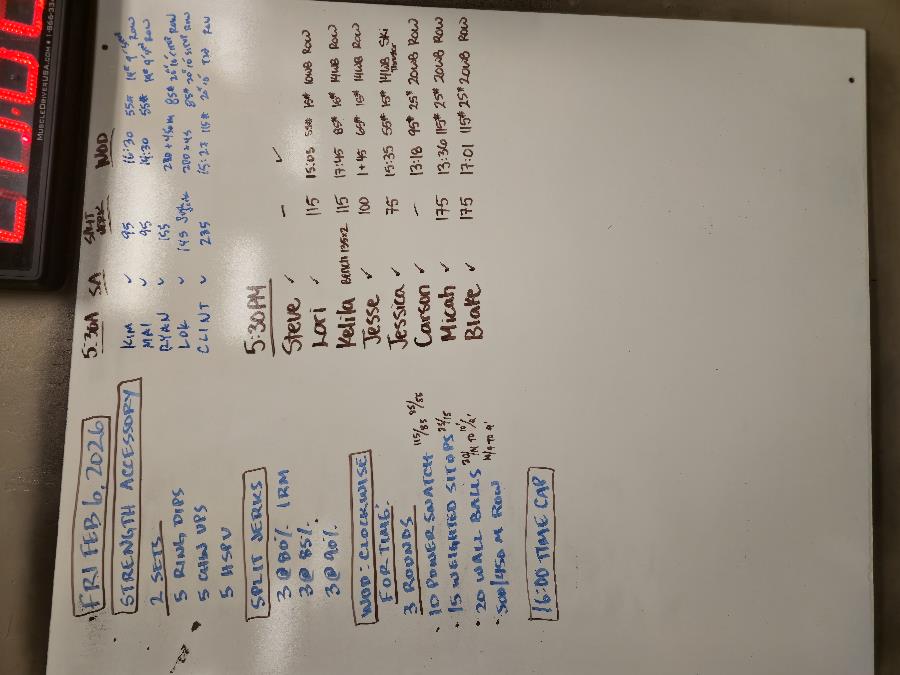 FRI FEB 6, 2026
STRENGTH ACCESSORY
2 SETS
5 RING DIPS
5 CHIN UPS
5 HSPU
SPLIT JERKS
3 @ 80% 1RM
3 @ 85%
3 @ 90%
WOD: CLOCKWISE
FOR TIME:
3 ROUNDS
• 10 POWER SNATCH 115/85 85/55
• 15 WEIGHTED SITUPS 25/15
• 20 WALL BALLS 20/14 TO 10/9'
14/9 TO 9'
• 500/450 M ROW
16:00 TIME CAP
5:30A SA SPLIT JERK WOD
KIM ✓ 95 16:30 55# 14# 9' Row
MAI ✓ 95 14:30 55# 14# 9' Row
RYAN ✓ 155 85# 20# Row
✓ 145 85# 20# Row
CLINT ✓ 235 15:27 115# Row
5:30PM
Steve ✓ – ✓
Lori ✓ 115 15:03 55# 10WB Row
Kelila Bench 135x2 115 17:45 85# 14WB Row
Jesse ✓ 100 1+45 65# 15# 14WB Row
Jessica ✓ 75 15:35 55# 15# 14WB Ski
Carson ✓ – 13:18 95# 25# 20WB Row
Micah ✓ 175 13:36 115# 25# 20WB Row
Blake ✓ 175 17:01 115# 25# 20WB Row
MUSCLEDRIVERUSA.COM • 1-866-33